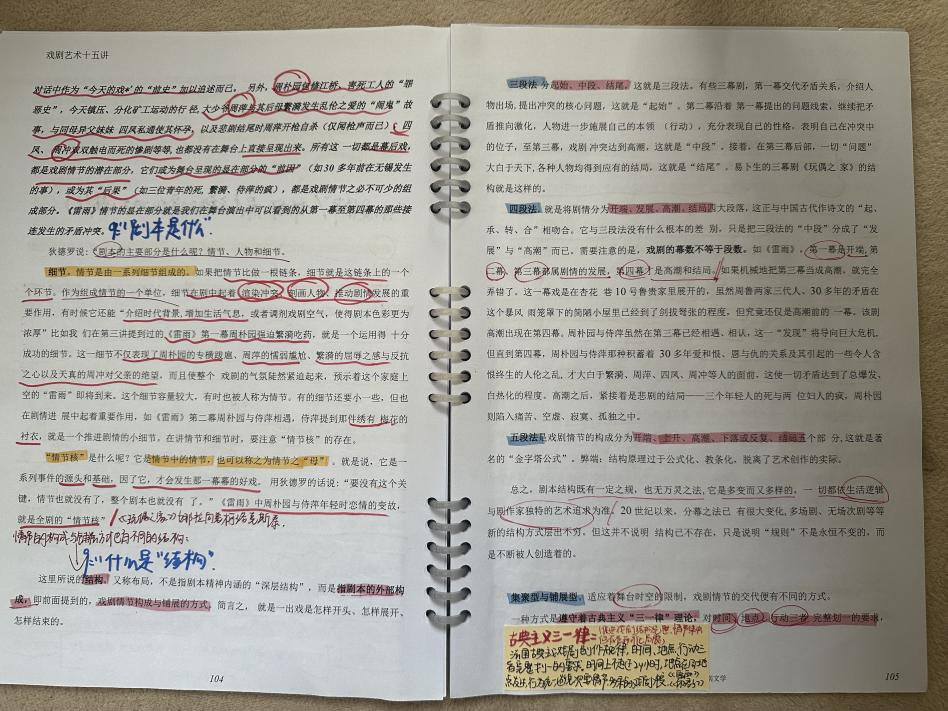 戏剧艺术十五讲
对话中作为“今天的戏*”的“前史”加以追述而已。另外，周朴园包修江桥、害死工人的“罪
恶史”，今天镇压、分化矿工运动的行 径，大少爷周萍与其后母繁漪发生乱伦之爱的“闹鬼”故
事，与同母异父妹妹 四凤私通使其怀孕，以及悲剧结尾时周萍开枪自杀（仅闻枪声而已）、四
凤、周冲双双触电而死的惨剧等等，也都没有在舞台上直接呈现出来。所有这 一切都是幕后戏，
都是戏剧情节的潜在部分，它们或为舞台呈现的显在部分的“前因”（如30 多年前在无锡发生
的事），或为其“后果”（如三位青年的死，繁漪、侍萍的疯），都是戏剧情节之必不可少的组
成部分。《雷雨》情节的显在部分就是我们在舞台演出中可以看到的从第一幕至第四幕的那些接
连发生的矛盾冲突。
“剧本是什么”
狄德罗说：“剧本的主要部分是什么呢？情节、人物和细节。”
细节，情节是由一系列细节组成的。如果把情节比做一根链条，细节就是这链条上的一个
个环节。作为组成情节的一个单位，细节在剧中起着渲染冲突、刻画人物、推动剧情发展的重
要作用，有时候它还能“介绍时代背景，增加生活气息，或者调剂戏剧空气，使得剧本色彩更为
浓厚”比如我 们在第三讲提到过的《雷雨》第一幕周朴园强迫繁漪吃药，就是一个运用得 十分
成功的细节。这一细节不仅表现了周朴园的专横跋扈、周萍的懦弱尴尬、繁漪的屈辱之感与反抗
之心以及天真的周冲对父亲的绝望，而且使整个 戏剧的气氛陡然紧迫起来，预示着这个家庭上
空的“雷雨”即将到来。这个细节容量较大，有时也被人称为情节。有的细节还要小一些，但也
在剧情进 展中起着重要作用，如《雷雨》第二幕周朴园与侍萍相遇，侍萍提到那件绣有 梅花的
衬衣，就是一个推进剧情的小细节。在讲情节和细节时，要注意“情节核”的存在。
“情节核”是什么呢？它是情节中的情节，也可以称之为情节之“母”。就是说，它是一
系列事件的源头和基础，因了它，才会发生那一幕幕的好戏。 用狄德罗的话说：“要没有这个关
键，情节也就没有了，整个剧本也就没有 了。”《雷雨》中周朴园与侍萍年轻时恋情的变故，
就是全剧的“情节核”
什么是“结构”
这里所说的结构，又称布局，不是指剧本精神内涵的“深层结构”，而是指剧本的外部构
成，即前面提到的，戏剧情节构成与铺展的方式，简言之， 就是一出戏是怎样开头、怎样展开、
怎样结束的。
104
三段法 分起始、中段、结尾，这就是三段法。有些三幕剧，第一幕交代矛盾关系，介绍人
物出场，提出冲突的核心问题，这就是“起始”。第二幕沿着 第一幕提出的问题线索，继续把矛
盾推向激化，人物进一步施展自己的本领 （行动），充分表现自己的性格，表明自己在冲突中
的位子，至第三幕，戏剧 冲突达到高潮，这就是“中段”。接着，在第三幕后部，一切“问题”
大白于天下，各种人物均得到应有的结局，这就是“结尾”。易卜生的三幕剧《玩偶之 家》的结
构就是这样的。
四段法，就是将剧情分为开端、发展、高潮、结局四大段落，这正与中国古代作诗文的“起、
承、转、合”相吻合。它与三段法没有什么根本的差 别，只是把三段法的“中段”分成了“发
展”与“高潮”而已，需要注意的是，戏剧的幕数不等于段数。如《雷雨》，第一幕是开端，第
二幕、第三幕都属剧情的发展，第四幕才是高潮和结局。如果机械地把第三幕当成高潮，就完全
弄错了。这一幕戏是在杏花 巷10号鲁贵家里展开的，虽然周鲁两家三代人、30多年的矛盾在
这个暴风 雨笼罩下的简陋小屋里已经到了剑拔弩张的程度，但究竟还仅是高潮前的 一幕。该剧
高潮出现在第四幕。周朴园与侍萍虽然在第二幕已经相遇、相认，这一“发现”将导向巨大危机，
但直到第四幕，周朴园与侍萍那种积蓄着 30多年爱和恨、恩与仇的关系及其引起的一些令人含
恨终生的人伦之乱，才大白于繁漪、周萍、四凤、周冲等人的面前，这使一切矛盾达到了总爆发、
白热化的程度。高潮之后，紧接着是悲剧的结局——三个年轻人的死与两 位妇人的疯，周朴园
则陷入痛苦、空虚、寂寞、孤独之中。
五段法是戏剧情节的构成分为开端、上升、高潮、下落或反复、结局五个部 分，这就是著
名的“金字塔公式”。弊端：结构原理过于公式化、教条化，脱离了艺术创作的实际。
总之，剧本结构既有一定之规，也无万灵之法，它是多变而又多样的，一 切都依生活逻辑
与剧作家独特的艺术追求为准，20世纪以来，分幕之法已 有很大变化，多场剧、无场次剧等等
新的结构方式层出不穷。但这并不说明 结构已不存在，只是说明“规则”不是永恒不变的，而
是不断被人创造着的。
集聚型与铺展型，适应着舞台时空的限制，戏剧情节的交代便有不同的方式。
一种方式是遵守着古典主义“三一律”理论，对时间、地点、行动三者 完整划一的要求，
古典主义三一律：
105